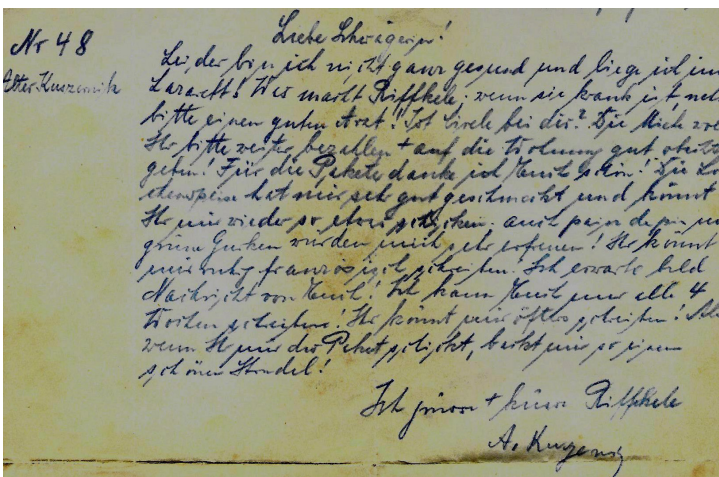 Nr 48
Liebe Schwägerin!
Leider bin ich nicht ganz gesund und liege ich im
Lazarett! Was macht Riffkele, wenn sie krank ist,
bitte einen guten Arzt! Ist bei dir? Die
Ihr bitte weiter bezahlen + auf die Wohnung gut
geben! Für die Pakete danke ich Euch schön! Die
hat mir sehr gut geschmeckt und könnt
Ihr mir wieder so etwas schicken. auch
grüne Gurken würden mich sehr erfreuen! Ihr könnt
mir ruhig französisch schreiben. Ich erwarte bald
Nachricht von Euch! Ich kann Euch nur alle 4
Wochen schreiben! Ihr könnt mir öfters schreiben!
wenn Ihr mir die Paket schickt, backt mir so einen
schönen Strudel!
Ich grüsse + küsse Riffkele
A.